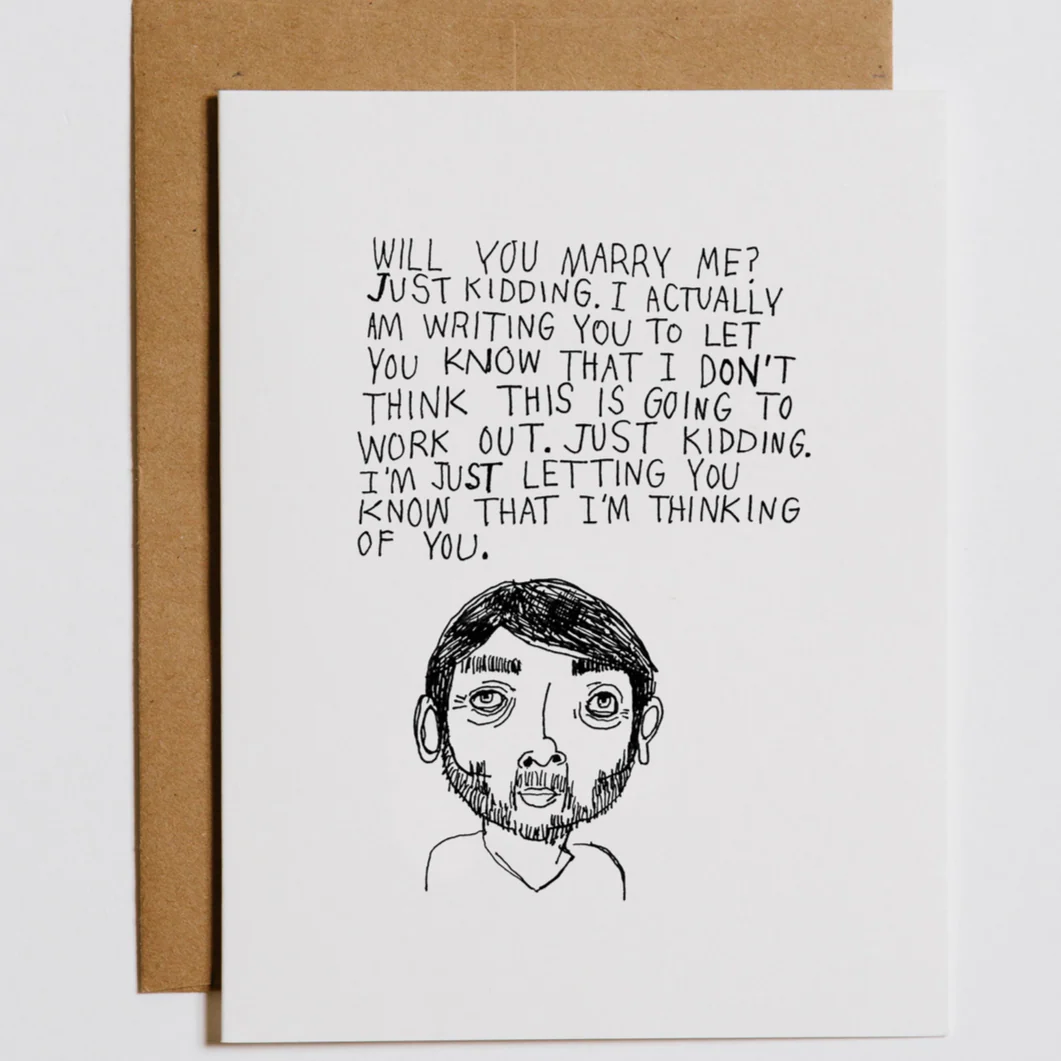 WILL YOU MARRY ME?
JUST KIDDING. I ACTUALLY
AM WRITING YOU TO LET
YOU KNOW THAT I DON'T
THINK THIS IS GOING TO
WORK OUT. JUST KIDDING.
I'M JUST LETTING YOU
KNOW THAT I'M THINKING
OF YOU.